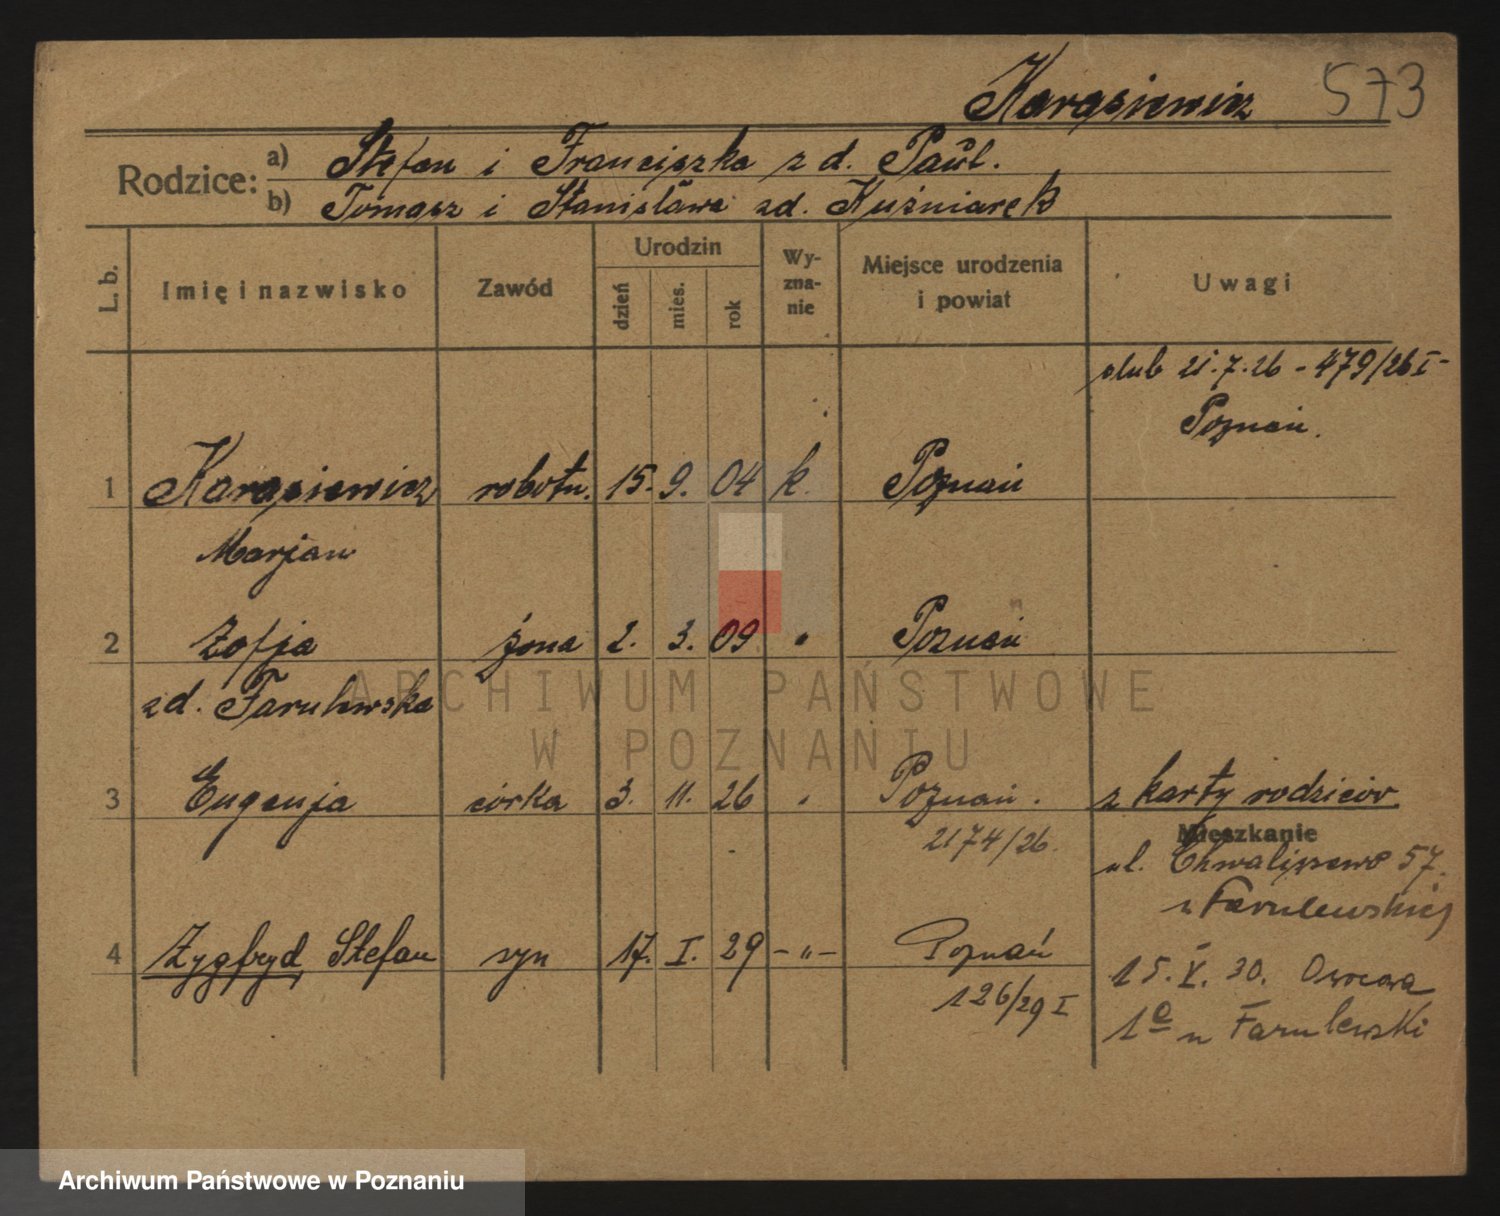 Karasiewicz 573
Rodzice:
a) Stefan i Franciszka z d. Paul.
b) Tomasz i Stanisława zd. Kuźniarek
L. b. Imię i nazwisko Zawód Urodzin dzień mies. rok Wy-zna-nie Miejsce urodzenia i powiat Uwagi
slub 21.7.26 - 479/26 I -
Poznań.
1 Karasiewicz robotn. 15. 9. 04 k. Poznań
Marjan
2 Zofja żona 2. 3. 09 " Poznań
zd. Farulewska
3 Eugenja córka 3. 11. 26 " Poznań. z karty rodziców
2174/26.
Mieszkanie
ul. Chwaliszewo 57.
u Farulewskiej
4 Zygfryd Stefan syn 17. I. 29 - " - Poznań
126/29 I
15. V. 30. Owocowa
1a u Farulewski
ARCHIWUM PAŃSTWOWE
W POZNANIU
Archiwum Państwowe w Poznaniu